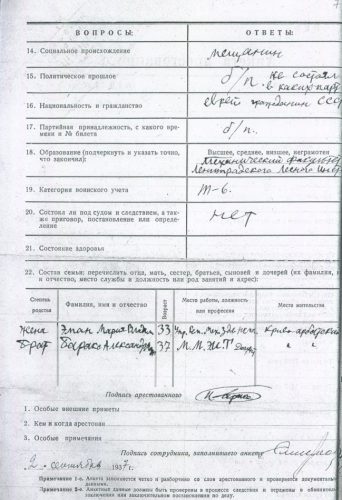 7
ВОПРОСЫ: ОТВЕТЫ:
14. Социальное происхождение мещанин
15. Политическое прошлое б/п. не состоял
в каких парт
16. Национальность и гражданство еврей гражданин СССР
17. Партийная принадлежность, с какого вре-
мени и № билета б/п.
18. Образование (подчеркнуть и указать точно,
что закончил): Высшее, среднее, низшее, неграмотен
Механический факультет
Ленинградского Лесного Инст
19. Категория воинского учета Т-6.
20. Состоял ли под судом и следствием, а так-
же приговор, постановление или опреде-
ление нет
21. Состояние здоровья
22. Состав семьи: перечислить отца, мать, сестер, братьев, сыновей и дочерей (их фамилия, и
и отчество, место службы и должность или род занятий и адрес):
Степень
родства Фамилия, имя и отчество Возраст Место работы, должность
или профессия Место жительства
жена Мария 33
брат Александр 37
Подпись арестованного
1. Особые внешние приметы
2. Кем и когда арестован
3. Особые примечания
Подпись сотрудника, заполнившего анкету
2 сентября 1937 г.
Примечание 1-е. Анкета заполняется четко и разборчиво со слов арестованного и проверяется документаль-
данными.
Примечание 2-е. Анкетные данные должны быть проверены в процессе следствия и отражены в обвините
заключении или заключительном постановлении по делу.